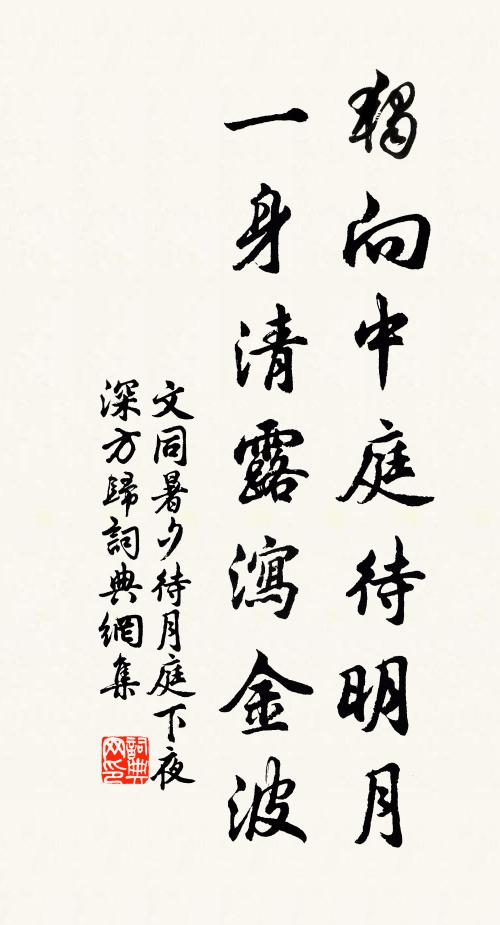 獨向中庭待明月
一身清露瀉金波
文同暑夕待月庭下夜
深方歸詞典網集
詞典
网印